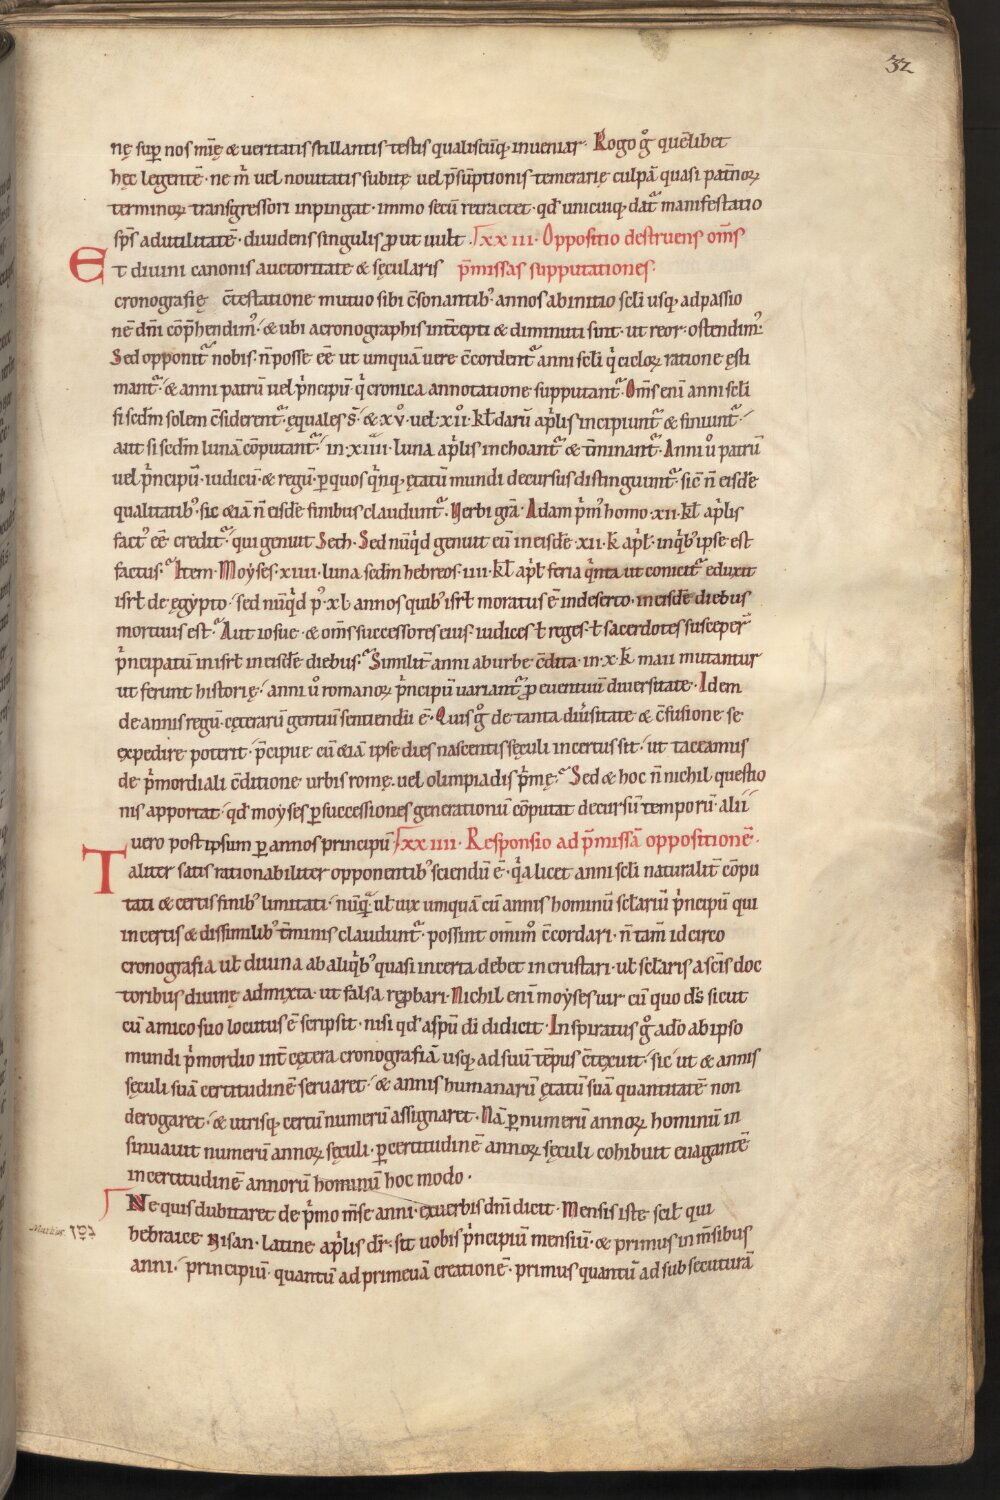 32
nę sup̄ nos mīę & veritatis stillantis testis qualiscūq; inveniar. Rogo gͦ quēlibet
hęc legentē · ne m̄ vel novitatis subitę vel p̄sūptionis temerarię culpā quasi patrnoꝝ
terminoꝝ transgressori inpingat · immo secū retractet · qd̄ unicuiq; dat᷑ manifestatio
sp̄s ad utilitatē · dividens singulis ꝓut vult · xxiii · Oppositio destruens om̄s
Et divini canonis auctoritate & sęcularis p̄missas supputationes ·
cronografię c̄testatione mutuo sibi c̄sonantib; annos ab initio scl̄i usq; ad passio
nē dn̄i cōp̄hendim᷒ · & ubi a cronographis int̄cepti & diminuti sint · ut reor · ostendim᷒ ·
Sed opponit᷑ nobis · n̄ posse eē ut umquā vere c̄cordent᷑ anni scl̄i qͥ cicloꝝ ratione ęsti
mant᷑ · & anni patrū vel pͥncipū · qͥ cronica annotatione supputant᷑ · Om̄s enī anni scl̄i
si scdm̄ solem c̄siderent᷑ · ęquales s̄ · & xvͦ · vel · xiiͦ · kl̄darū apͥlis incipiunt᷑ & finiunt᷑ ·
aut si scdm̄ lunā cōputant᷑ · in · xiiii · luna apͥlis inchoant᷑ & t̄minant᷑ · Anni vͦ patrū
vel pͥncipū · iudicū · & regū · ꝑ quos qͥnq; ętatū mundi decursus distinguunt᷑ · sic̄ n̄ eisdē
qualitatib; · sic &iā n̄ eisdē finibus claudunt᷑ · Verbi grā · Adam pͥm᷒ homo · xii · kl̄ apͥlis
fact᷒ eē credit᷑ · qui genuit Seth · Sed nūqͥd genuit eū in eisdē · xii · k̄ apͥl̄ · in qͥb; ipse est
factus · Item · Moyses · xiiii · luna scdm̄ hebreos · iiii · kl̄ apͥl̄ feria qͥnta ut conicit᷑ eduxit
isrl̄ de ęgypto · sed nūqͥd p᷒ · xl · annos quib; isrl̄ moratus ē in deserto · in eisdē diebus
mortuus est · Aut iosue · & om̄s successores eius · iudices ł reges · ł sacerdotes susceper̄
pͥncipatū in isrl̄ in eisdē diebus · Similit̄ anni ab urbe c̄dita · in · x · k̄ · maii mutantur
ut ferunt historię · anni vͦ romanoꝝ pͥncipū variant᷑ ꝓ eventuū diversitate · Idem
de annis regū · cęterarū gentiū sentiendū ē · Quis gͦ de tanta diṽsitate & c̄fusione se
expedire poterit · p̄cipue cū &iā ipse dies nascentis sęculi incertus sit · ut taceamus
de pͥmordiali c̄ditione urbis romę · vel olimpiadis pͥmę · Sed & hoc n̄ nichil questio
nis apportat · qd̄ moyses ꝑ successiones generationū cōputat decursū temporū · alii
vero post ipsum ꝑ annos principū · xxiiii · Responsio ad p̄missā oppositionē ·
Taliter satis rationabiliter opponentib; sciendū ē · qͥa licet anni scl̄i naturalit̄ cōpu
tati & certis finib; limitati · nūqᷓ ul̄ vix umquā cū annis hominū scl̄ariū pͥncipū qui
incertis & dissimilib; t̄minis claudunt᷑ · possint om̄imͦ c̄cordari · n̄ tam̄ idcirco
cronografia ul̄ divina ab aliqͥb; quasi incerta debet incrustari · ul̄ scl̄aris a scīs doc
toribus divinę admixta · ut falsa reꝓbari · Nichil enī moyses vir cū quo ds̄ sicut
cū amico suo locutus ē scripsit · nisi qd̄ a sp̄u dī didicit · Inspiratus gͦ a dō ab ipso
mundi pͥmordio int̄ cętera cronografiā usq; ad suū tēpus c̄texuit · sic ut & annis
sęculi suā certitudinē servaret · & annis humanarū ętatū suā quantitatē non
derogaret · & utrisq; certū numerū assignaret · Nā ꝑ numerū annoꝝ hominū in
sinuavit numerū annoꝝ sęculi · ꝑ certitudinē annoꝝ sęculi cohibuit evagantē
incertitudinē annorū hominū hoc modo ·
Ne quis dubitaret de pͥmo m̄se anni · ex verbis dn̄i dicit · Mensis iste scil̄ qui
hebraice Nisan · latine apͥlis dr̄ · sit vobis pͥncipiū mensiū · & primus in m̄sibus
anni · principiū · quantū ad primevā creationē · primus quantū ad subsecuturā